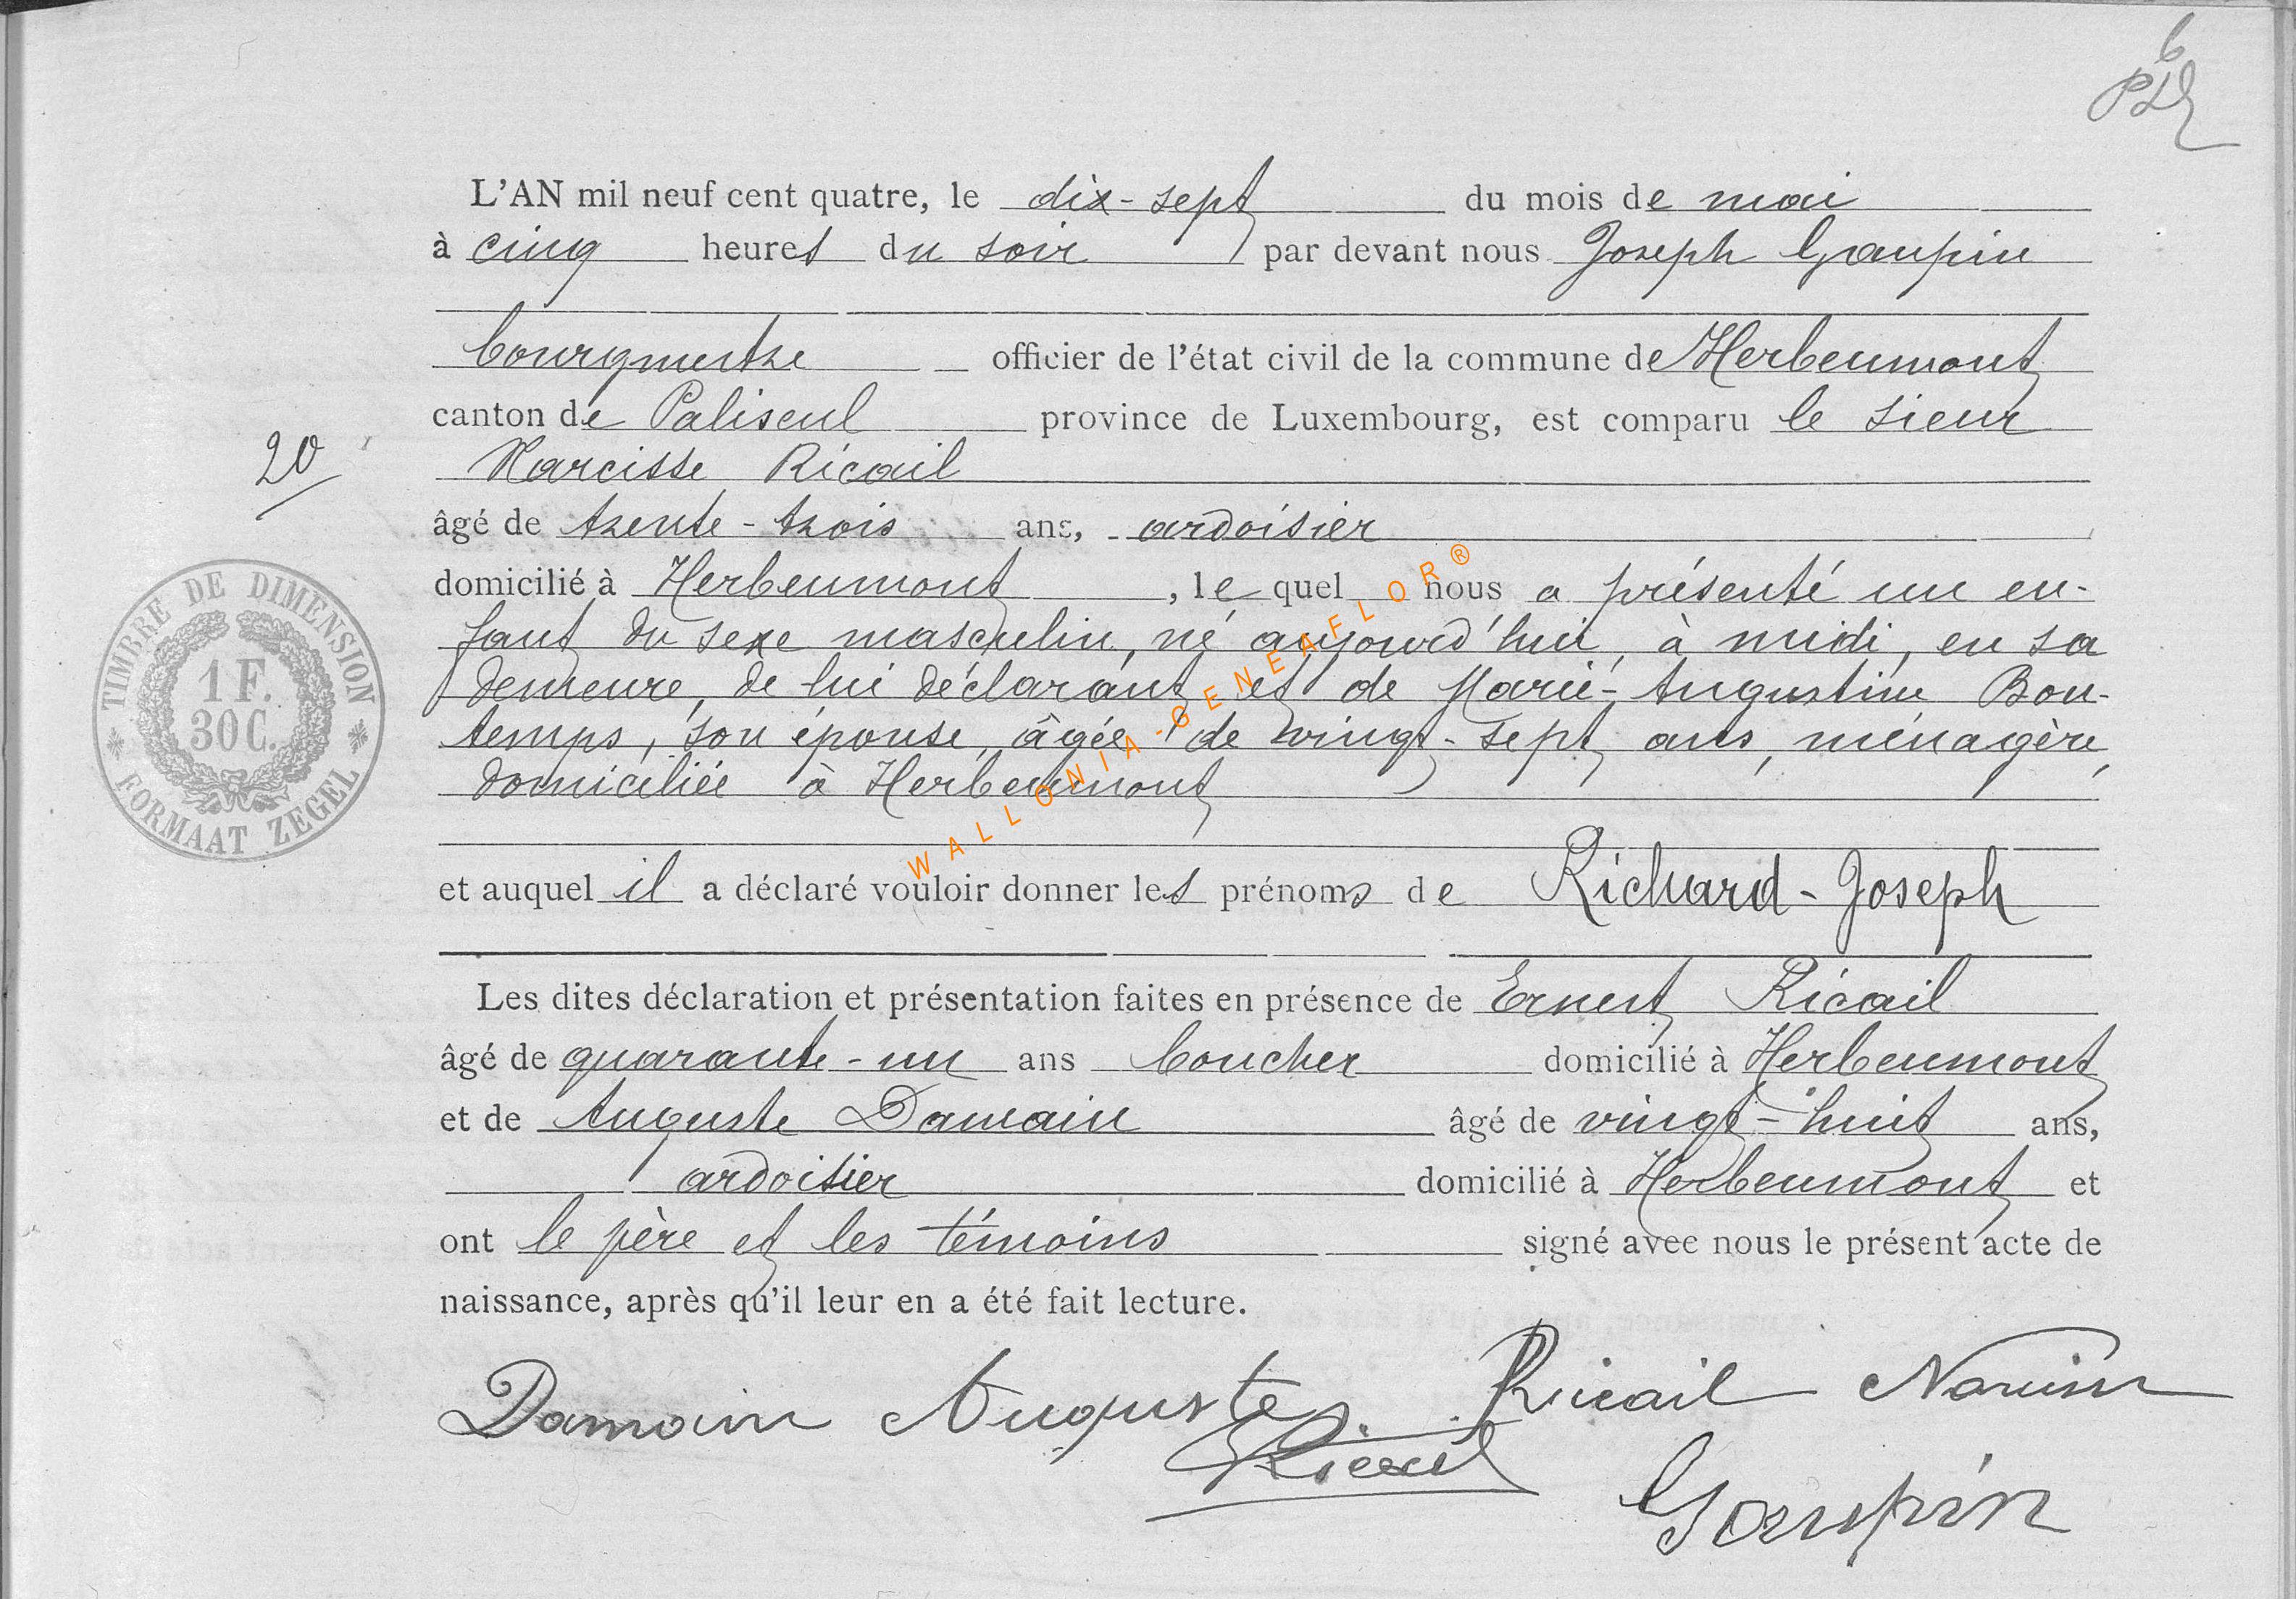 6
L'AN mil neuf cent quatre, le dix-sept du mois de mai
à cinq heures du soir par devant nous Joseph Gaupin
bourgmestre officier de l'état civil de la commune de Herbeumont
canton de Paliseul province de Luxembourg, est comparu le sieur
20
Narcisse Ricail
âgé de trente-trois ans, ardoisier
domicilié à Herbeumont, le quel nous a présenté un en-
fant du sexe masculin, né aujourd'hui, à midi, en sa
demeure, de lui déclarant et de Marie-Augustine Bon-
temps, son épouse, âgée de vingt-sept ans, ménagère,
domiciliée à Herbeumont
et auquel il a déclaré vouloir donner les prénoms de Richard-Joseph
Les dites déclaration et présentation faites en présence de Ernest Ricail
âgé de quarante-un ans boucher domicilié à Herbeumont
et de Auguste Damain âgé de vingt-huit ans,
ardoisier domicilié à Herbeumont et
ont le père et les témoins signé avec nous le présent acte de
naissance, après qu'il leur en a été fait lecture.
Damain Auguste Ricail Narcisse
E. Ricail
Gaupin
TIMBRE DE DIMENSION
1 F.
30 C.
FORMAAT ZEGEL
WALLONIA-GENEAFLOR®